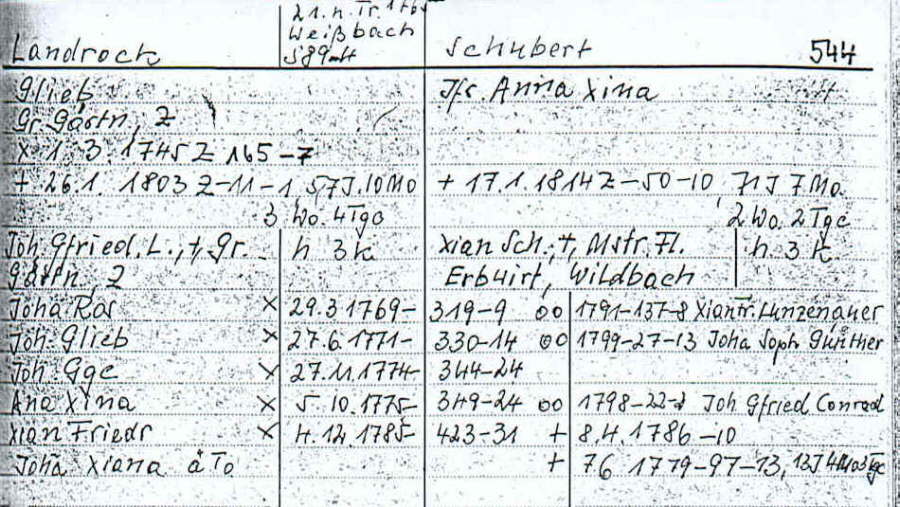 21. n. Tr. 1765
Weißbach
Landrock Schubert 544
Glieb Jfr. Anna Xina
Gr. Gärtn, Z
X 1. 3. 1745 Z 165-7
+ 26.1. 1803 Z-11-1, 57J. 10Mo + 17.1.1814 Z-50-10 71J 7Mo.
3 Wo. 4Tge 2 Wo. 2 Tge
Joh. Gfried. L., +, Gr. h 3k Xian Sch., +, Mstr. Fl. h. 3 k
Gärtn, Z Erbwirt, Wildbach
Joha Ros X 29.3 1769- 319-9 oo 1791-137-8 Xian Tr. Lunzenauer
Joh. Glieb X 27.6.1771- 330-14 oo 1799-27-13 Joha Soph Günther
Joh. Gge X 27.11.1774- 344-24
Ana Xina X 5.10.1775- 349-24 oo 1798-22-2 Joh Gfried Conrad
Xian Friedr X 4.12.1785- 423-31 + 8.4.1786-10
Joha Xiana à To + 7.6 1779-97-13, 13J 4Mo 3Tge